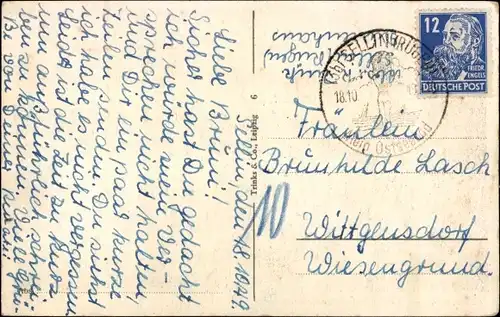 Sellin, den 18.10.49.
Liebe Bruni!
Sicher hast Du gedacht
ich würde mein Ver-
sprechen nicht halten,
und Dir ein paar kurze
Zeilen senden. Du siehst
ich habe es nicht vergessen
Leider ist die Zeit zu kurz
um ausführlich schrei-
ben zu können. Viele Grü-
ße von Deiner
Trinks & Co., Leipzig 6
SELLIN (RÜGEN)
18.10
Ostseebad
12
FRIEDR.
ENGELS
DEUTSCHE POST
Fräulein
Brunhilde Lasch
10
Wittgensdorf
Wiesengrund.